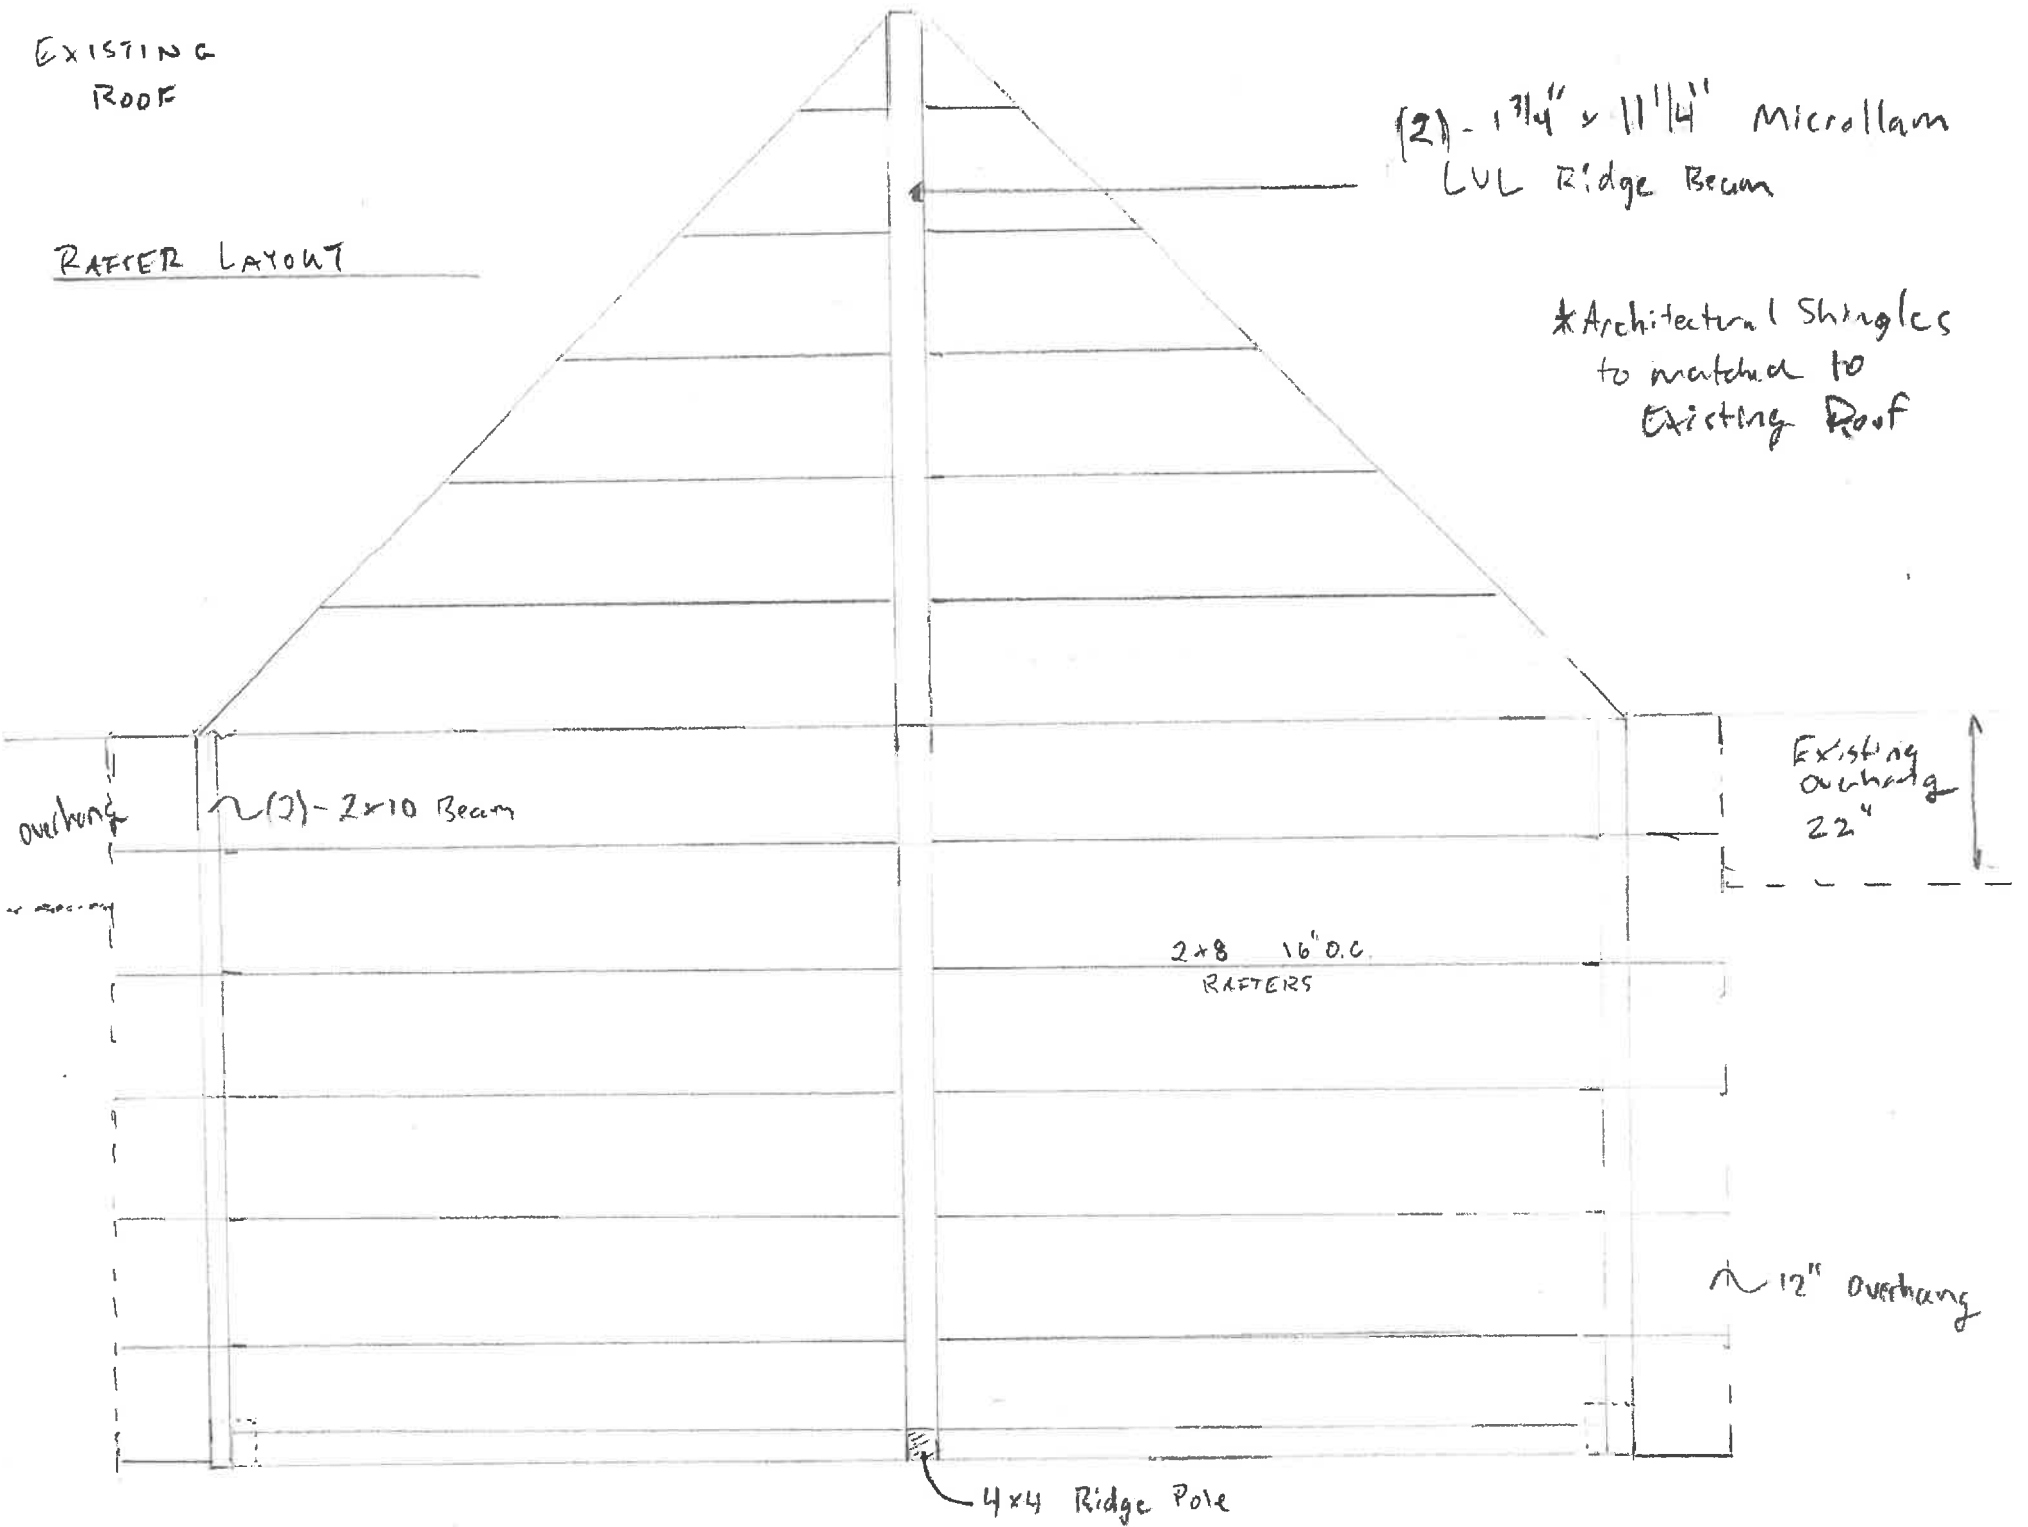 EXISTING
ROOF
RAFTER LAYOUT
(2) - 1 3/4" x 11 1/4" Microllam
LVL Ridge Beam
*Architectural Shingles
to matched to
Existing Roof
Existing
overhang
22"
overhang
(2) - 2x10 Beam
2x8 16" O.C.
RAFTERS
12" overhang
4x4 Ridge Pole